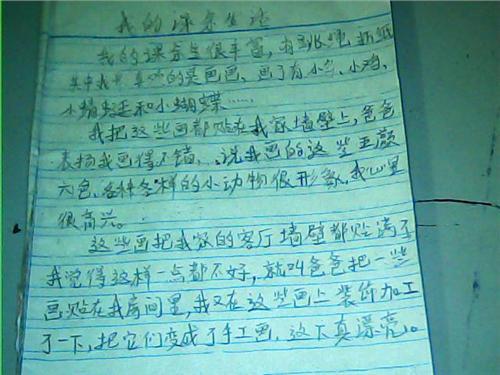 我的课余生活
我的课余生很丰富,有跳绳,折纸
其中我最喜欢的是画画,画了有小鸟、小鸡、
小蜻蜓和小蝴蝶……
我把这些画都贴在我家墙壁上,爸爸
表扬我画得不错,说我画的这些五颜
六色、各种各样的小动物很形象,我心里
很高兴。
这些画把我家的客厅墙壁都贴满了
我觉得这样一点都不好,就叫爸爸把一些
画贴在我房间里,我又在这些画上装饰加工
了一下,把它们变成了手工画,这下真漂亮。